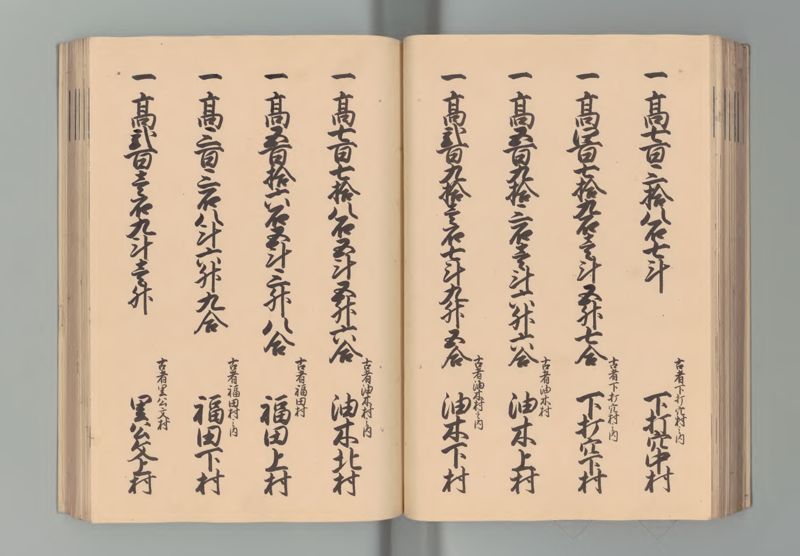 一高七百三拾八石七斗
古者下打穴村之内
下打穴中村
一高四百七拾九石壱斗五升七合
古者下打穴村之内
下打穴下村
一高五百九拾三石壱斗六升六合
古者油木村
油木上村
一高弐百九拾壱石七斗九升五合
古者油木村之内
油木下村
一高七百七拾八石五斗五升六合
古者油木村之内
油木北村
一高五百拾六石五斗三升八合
古者福田村
福田上村
一高三百三石八斗六升九合
古者福田村之内
福田下村
一高弐百壱石九斗壱升
古者里公文村
里公文上村